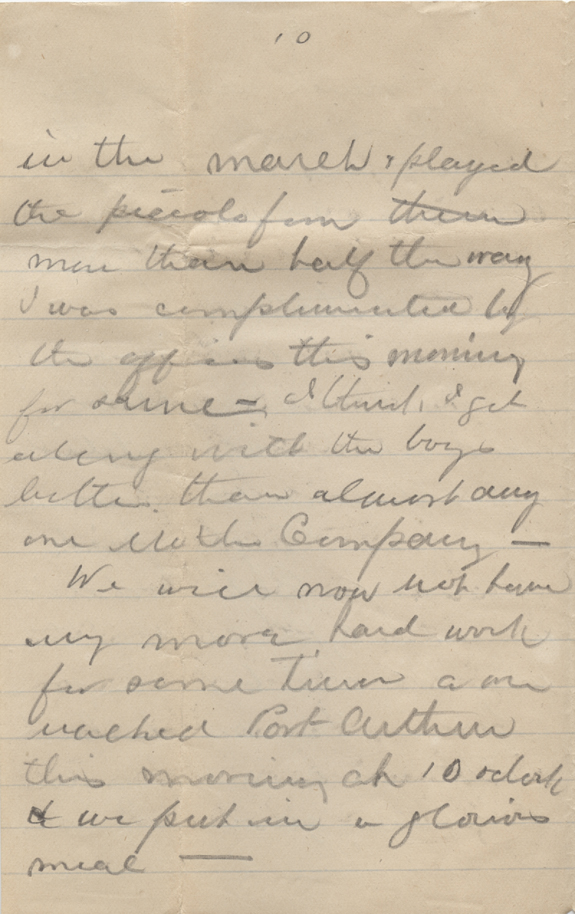 10
in the march & played
the piccolo for them
more than half the way
I was complimented by
the officers this morning
for same - I think I get
along with the boys
better than almost any
one in the Company —
We will now not have
any more hard work
for some time as we
reached Port Arthur
this morning at 10 oclock
& we put in a glorious
meal —